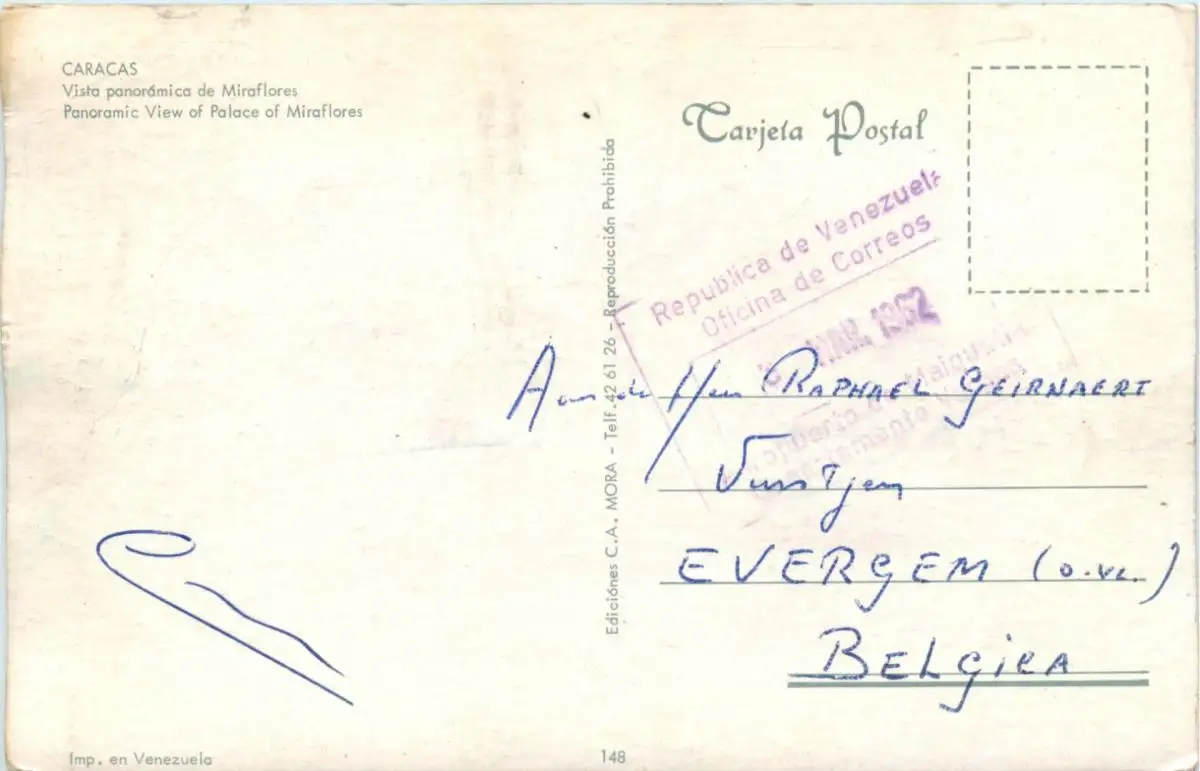 CARACAS
Vista panorámica de Miraflores
Panoramic View of Palace of Miraflores
Tarjeta Postal
Ediciónes C.A. MORA - Telf. 42 61 26 - Reproducción Prohibida
Republica de Venezuela
Oficina de Correos
MAR. 1962
Aan de Heer RAPHAEL GEIRNAERT
EVERGEM (O.VL.)
BELGICA
Imp. en Venezuela
148